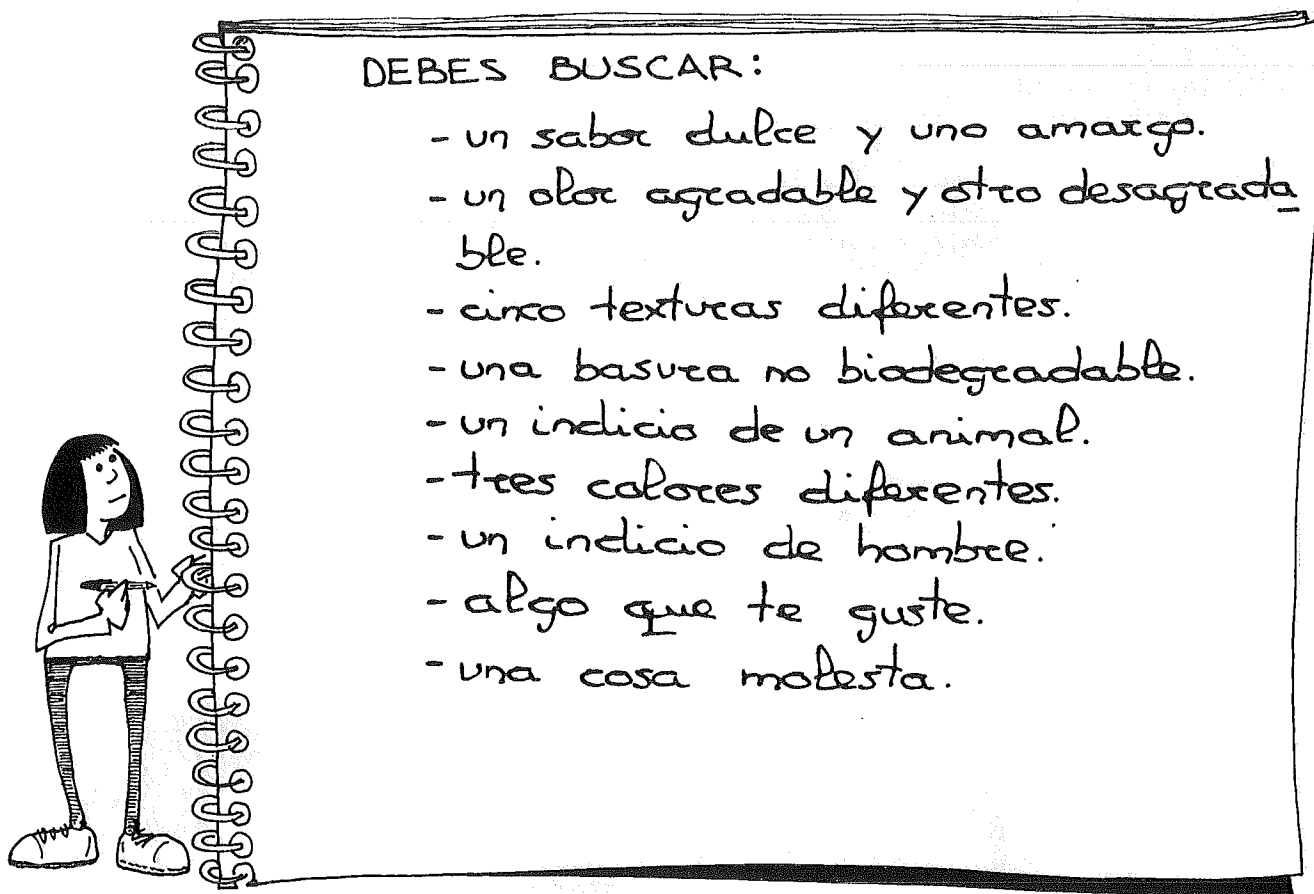 DEBES BUSCAR:
- un sabor dulce y uno amargo.
- un olor agradable y otro desagrada
ble.
- cinco texturas diferentes.
- una basura no biodegradable.
- un indicio de un animal.
- tres colores diferentes.
- un indicio de hombre.
- algo que te guste.
- una cosa molesta.